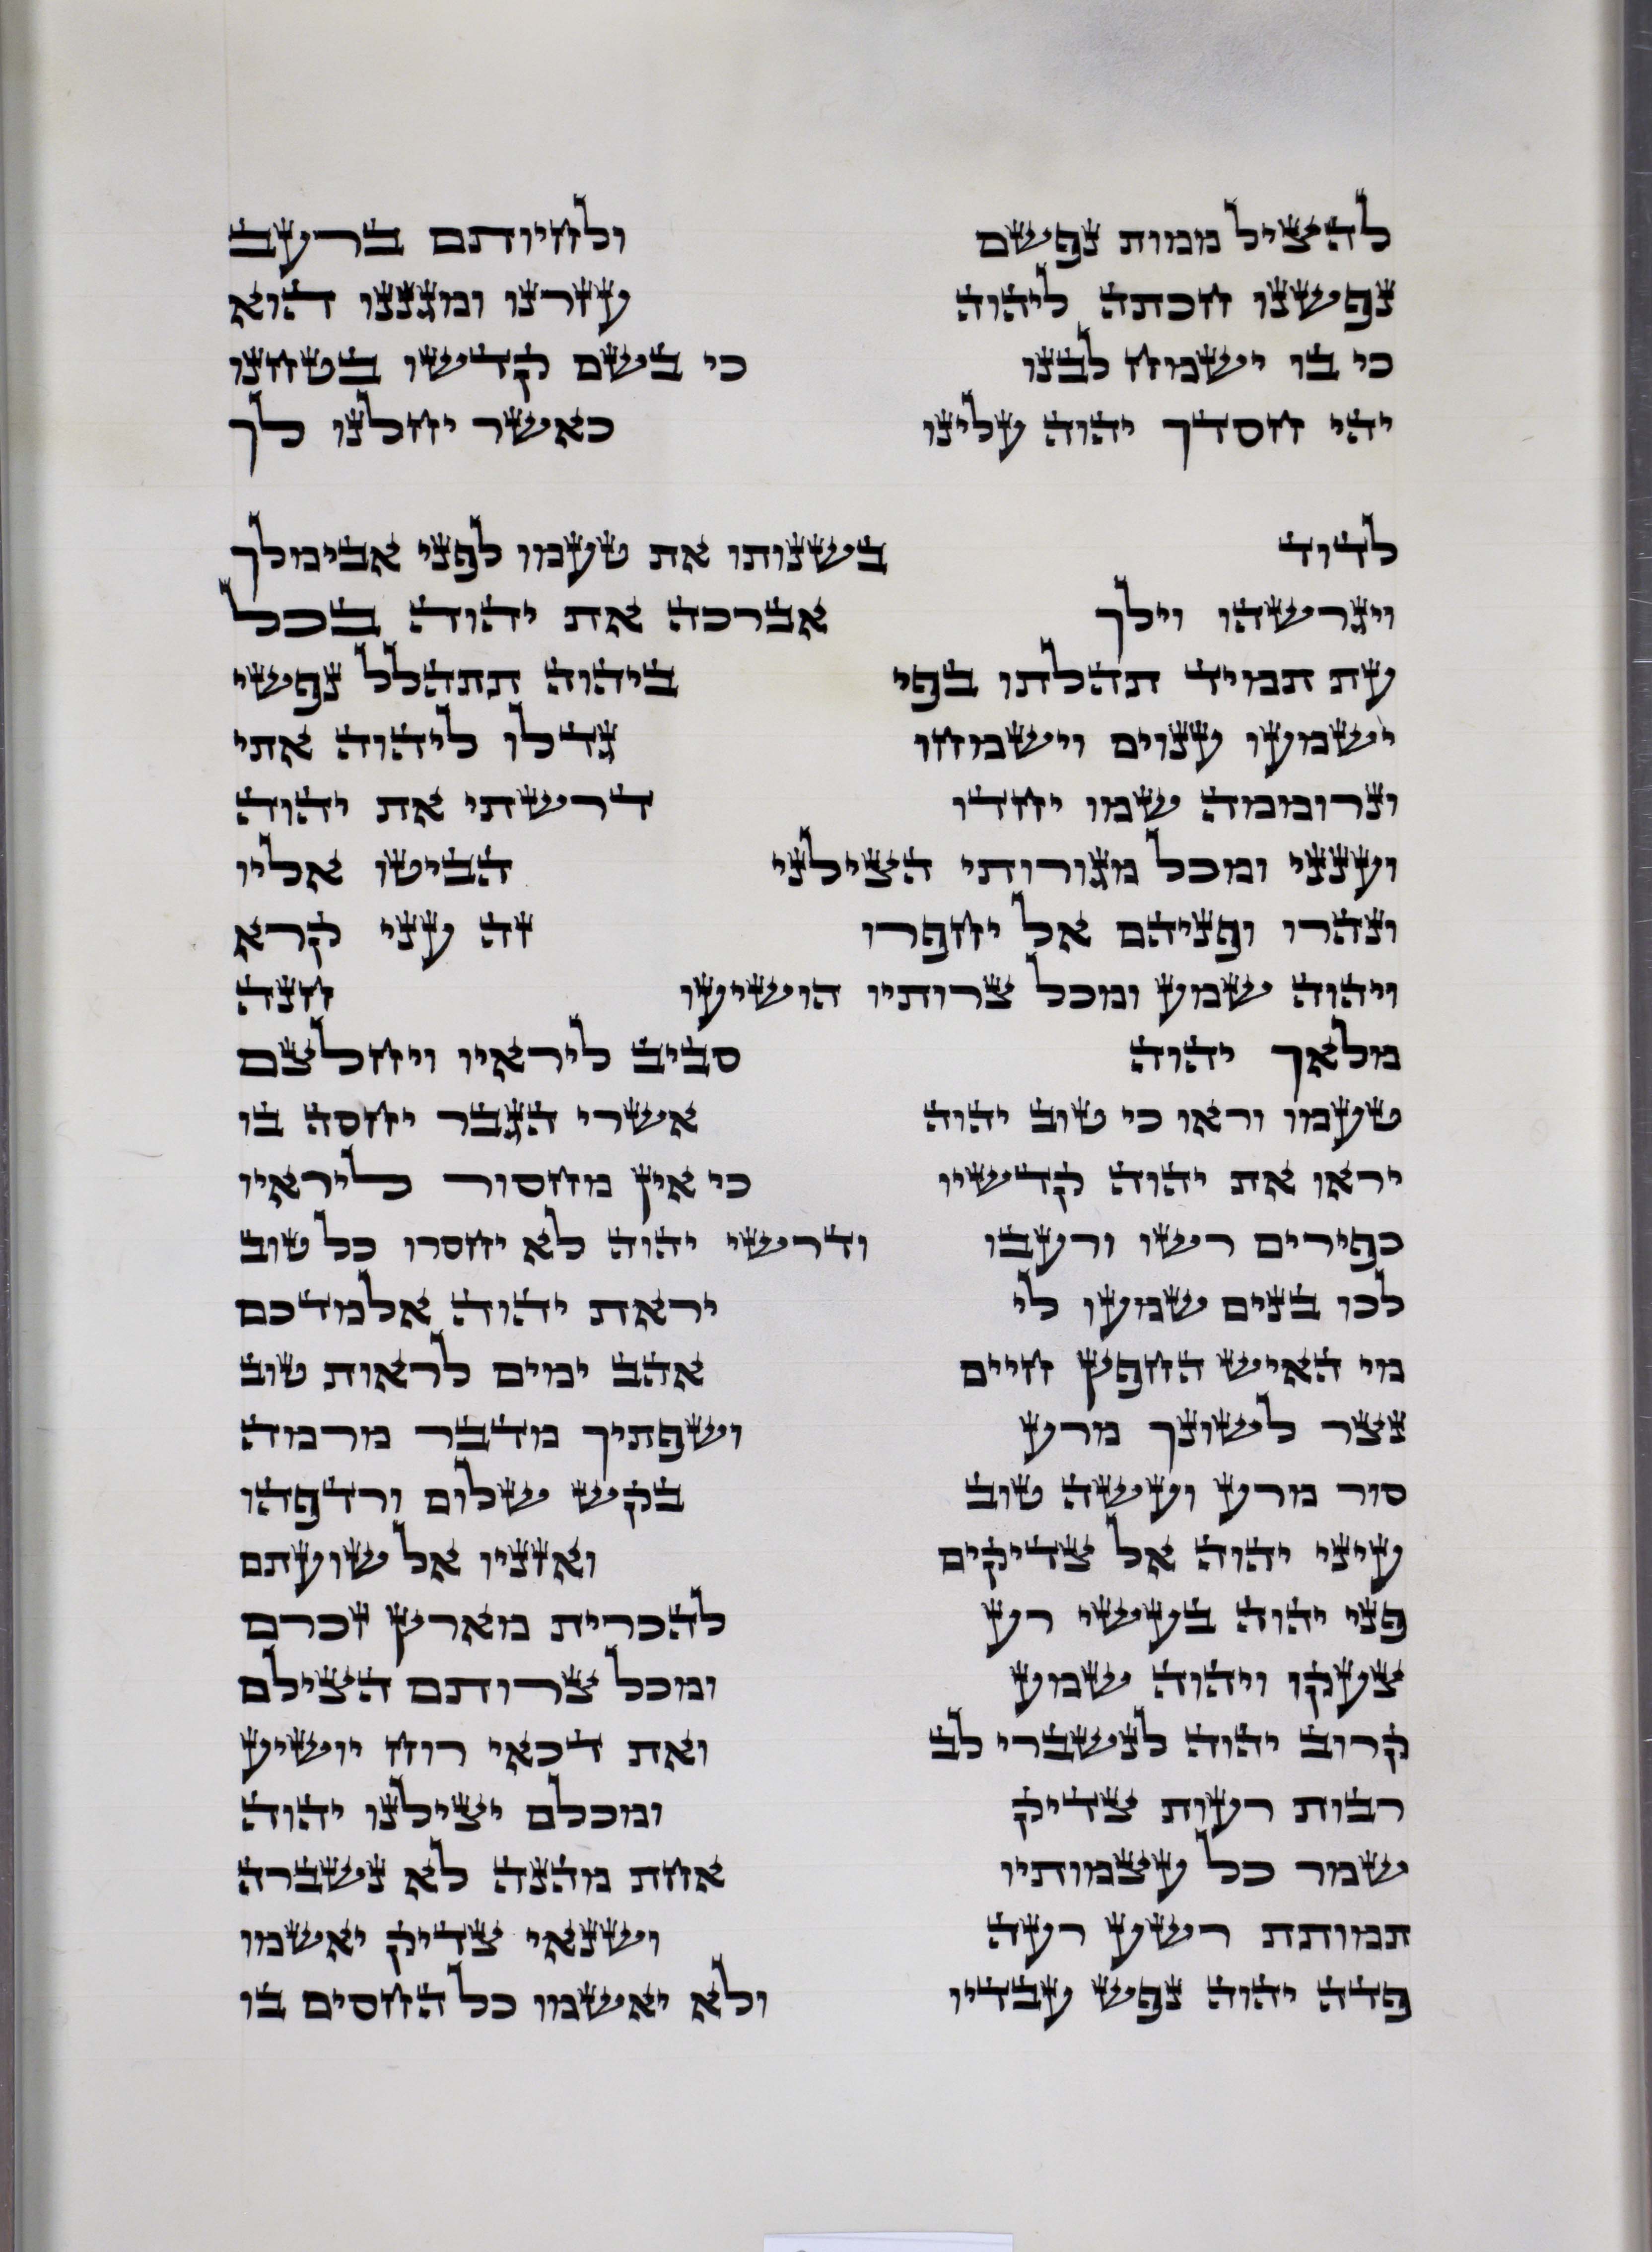 להציל ממות נפשם ולחיותם ברעב
נפשנו חכתה ליהוה עזרנו ומגננו הוא
כי בו ישמח לבנו כי בשם קדשו בטחנו
יהי חסדך יהוה עלינו כאשר יחלנו לך
לדוד בשנותו את טעמו לפני אבימלך
ויגרשהו וילך אברכה את יהוה בכל
עת תמיד תהלתו בפי ביהוה תתהלל נפשי
ישמעו ענוים וישמחו גדלו ליהוה אתי
ונרוממה שמו יחדו דרשתי את יהוה
וענני ומכל מגורותי הצילני הביטו אליו
ונהרו ופניהם אל יחפרו זה עני קרא
ויהוה שמע ומכל צרותיו הושיעו חנה
מלאך יהוה סביב ליראיו ויחלצם
טעמו וראו כי טוב יהוה אשרי הגבר יחסה בו
יראו את יהוה קדשיו כי אין מחסור ליראיו
כפירים רשו ורעבו ודרשי יהוה לא יחסרו כל טוב
לכו בנים שמעו לי יראת יהוה אלמדכם
מי האיש החפץ חיים אהב ימים לראות טוב
נצר לשונך מרע ושפתיך מדבר מרמה
סור מרע ועשה טוב בקש שלום ורדפהו
עיני יהוה אל צדיקים ואזניו אל שועתם
פני יהוה בעשי רע להכרית מארץ זכרם
צעקו ויהוה שמע ומכל צרותם הצילם
קרוב יהוה לנשברי לב ואת דכאי רוח יושיע
רבות רעות צדיק ומכלם יצילנו יהוה
שמר כל עצמותיו אחת מהנה לא נשברה
תמותת רשע רעה ושנאי צדיק יאשמו
פדה יהוה נפש עבדיו ולא יאשמו כל החסים בו